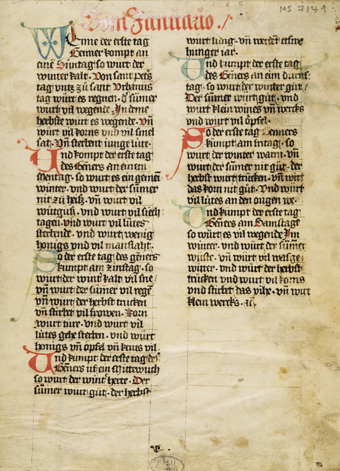 MS 7141
Vom Januario
Wenne der erste tag
Jenner kompt an
eine Suntag · so wurt der
winter kalt · Von sant peters
tag untz zu sant Urbanus
tag wurt es regnen · d sumer
wurt vil wegende · In dem
herbste wurt es wegende · vñ
wurt vil korns vnd vil smel
sat · Vñ sterbent iunge lut ·
Und kompt der erste tag
des Jeners an einem
Mentag · so wurt es ein gemein
winter · vnd wurt der sumer
nit zu heiß · vñ wurt vil
vnd wurt vil siech
tagen · vnd wurt vil lutes
sterbende · vnd wurt wenig
honigs vnd vil manslaht ·
So der erste tag des geners
kumpt am zinstag · so
wurt der wint kalt vil sne
vñ wurt der sumer vil rege
vñ wurt der herbst trucken
vñ stirbet vil frowen · korn
wurt ture · vnd wurt vil
lutes gehe sterben · vnd wurt
honigs vñ öpfel vñ krut vil
Und kumpt der erste tag des
Jeners uf ein Mittewuch
so wurt der wint herte · Der
sumer wurt gut · der herbst
wurt · vñ werdet erstre
hunger iar ·
Und kumpt der erste tag
des Geners an eim durns
tag · so wurt der winter gut /
Der sumer wurt gut · vnd
wurt klein wines vñ wercks
vnd wurt vil öpfel ·
So der erste tag Jenners
kumpt am fritag · so
wurt der winter warm · vñ
wurt der sumer nit gut · der
herbst wurt trucken · vñ wurt
das korn nit gut · Und wurt
vil lutes an den ougen we ·
Und kumpt der erste tag
Geners am Samstage
so wurt es vil wegende · In
winter · vnd wurt der sumer
· vñ wurt vil
witter · vnd wurt der herbst
trucken · vnd wurt vil korns
vnd stirbet das vihe · vñ wurt
klein wercks ·